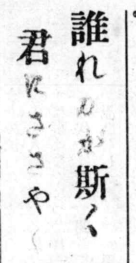 誰れ斯く
君にささやく